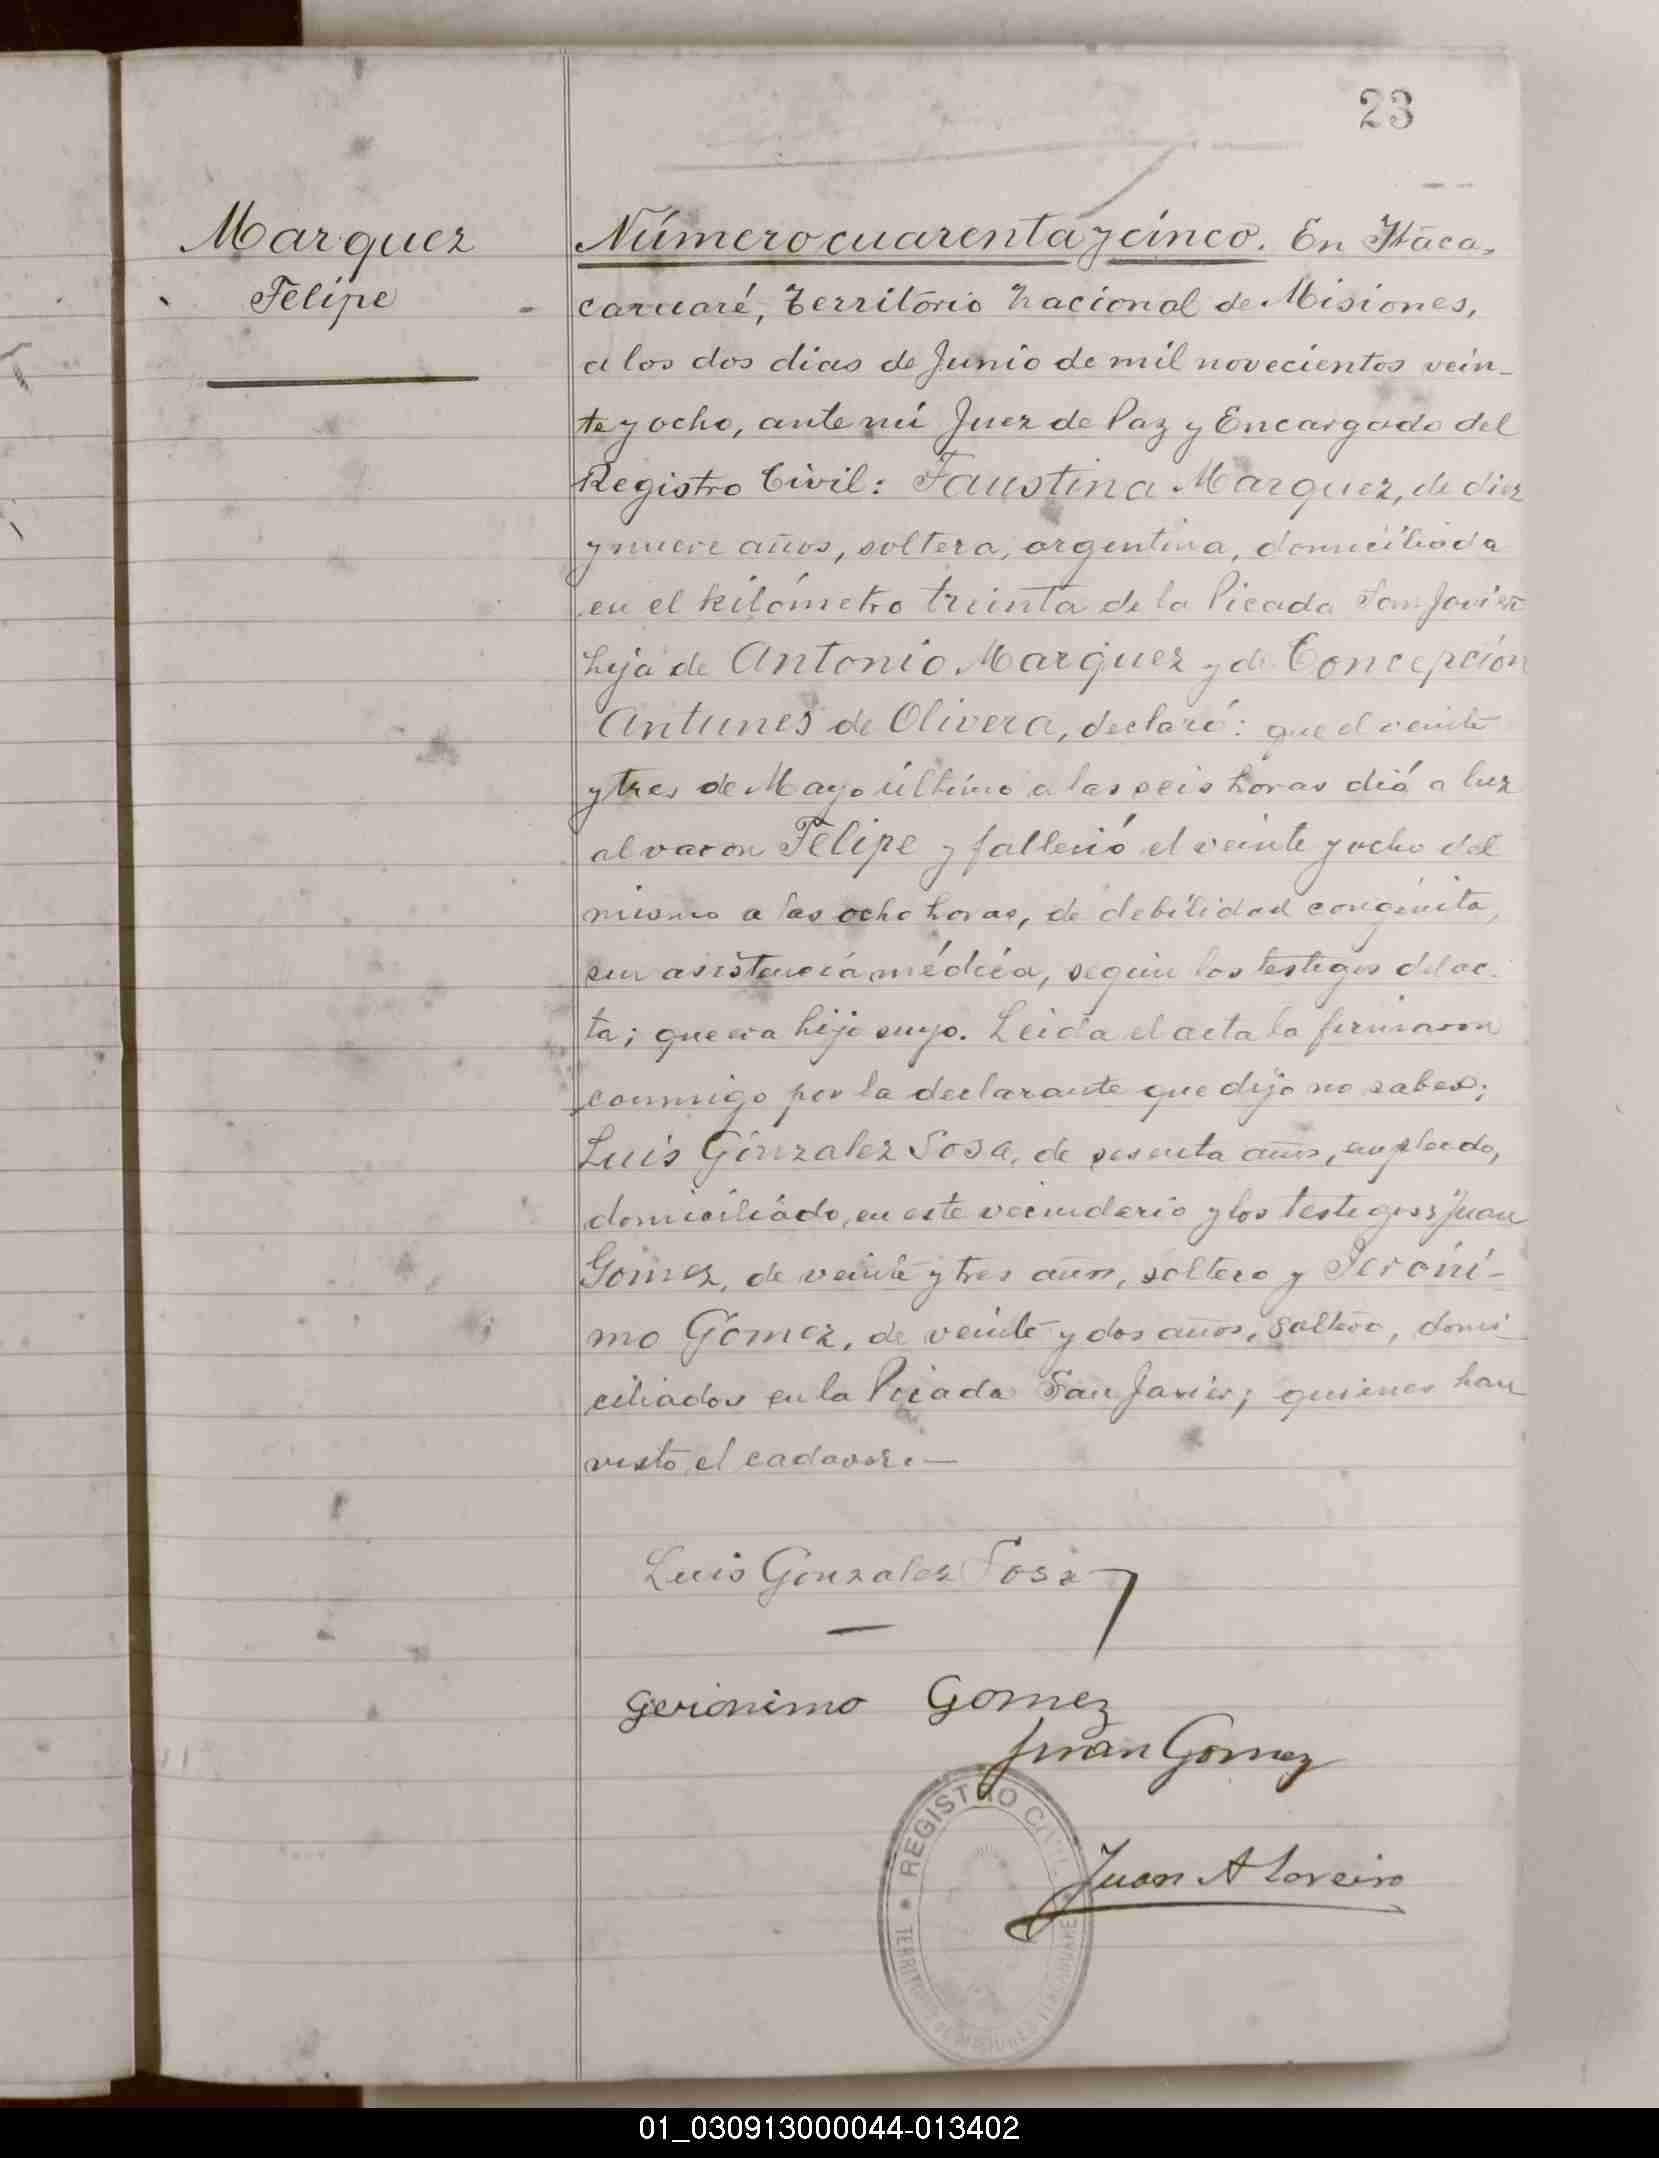 23
Marquez
Felipe
Número cuarenta y cinco. En Itaca-
caruaré, Territorio Nacional de Misiones,
a los dos dias de Junio de mil novecientos vein-
te y ocho, ante mi Juez de Paz y Encargado del
Registro Civil: Faustina Marquez, de diez
y nueve años, soltera, argentina, domiciliada
en el kilómetro treinta de la Picada San Javier
hija de Antonio Marquez y de Concepción
Antunes de Olivera, declaró: que el veinte
y tres de Mayo último a las seis horas dió a luz
al varon Felipe y falleció el veinte y ocho del
mismo a las ocho horas, de debilidad congénita,
sin asistencia médica, segun los testigos del ac-
ta; que era hijo suyo. Leida el acta la firmaron
conmigo por la declarante que dijo no saber;
Luis Gonzalez Sosa, de sesenta años, empleado,
domiciliado, en este vecindario y los testigos: Juan
Gomez, de veinte y tres años, soltero y Jeróni-
mo Gomez, de veinte y dos años, soltero, domi-
ciliados en la Picada San Javier; quienes han
visto el cadaver.—
Luis Gonzalez Sosa
Geronimo Gomez
Juan Gomez
Juan A Loreiro
REGISTRO CIVIL
TERRITORIO DE MISIONES ITACARUARE
01_030913000044-013402